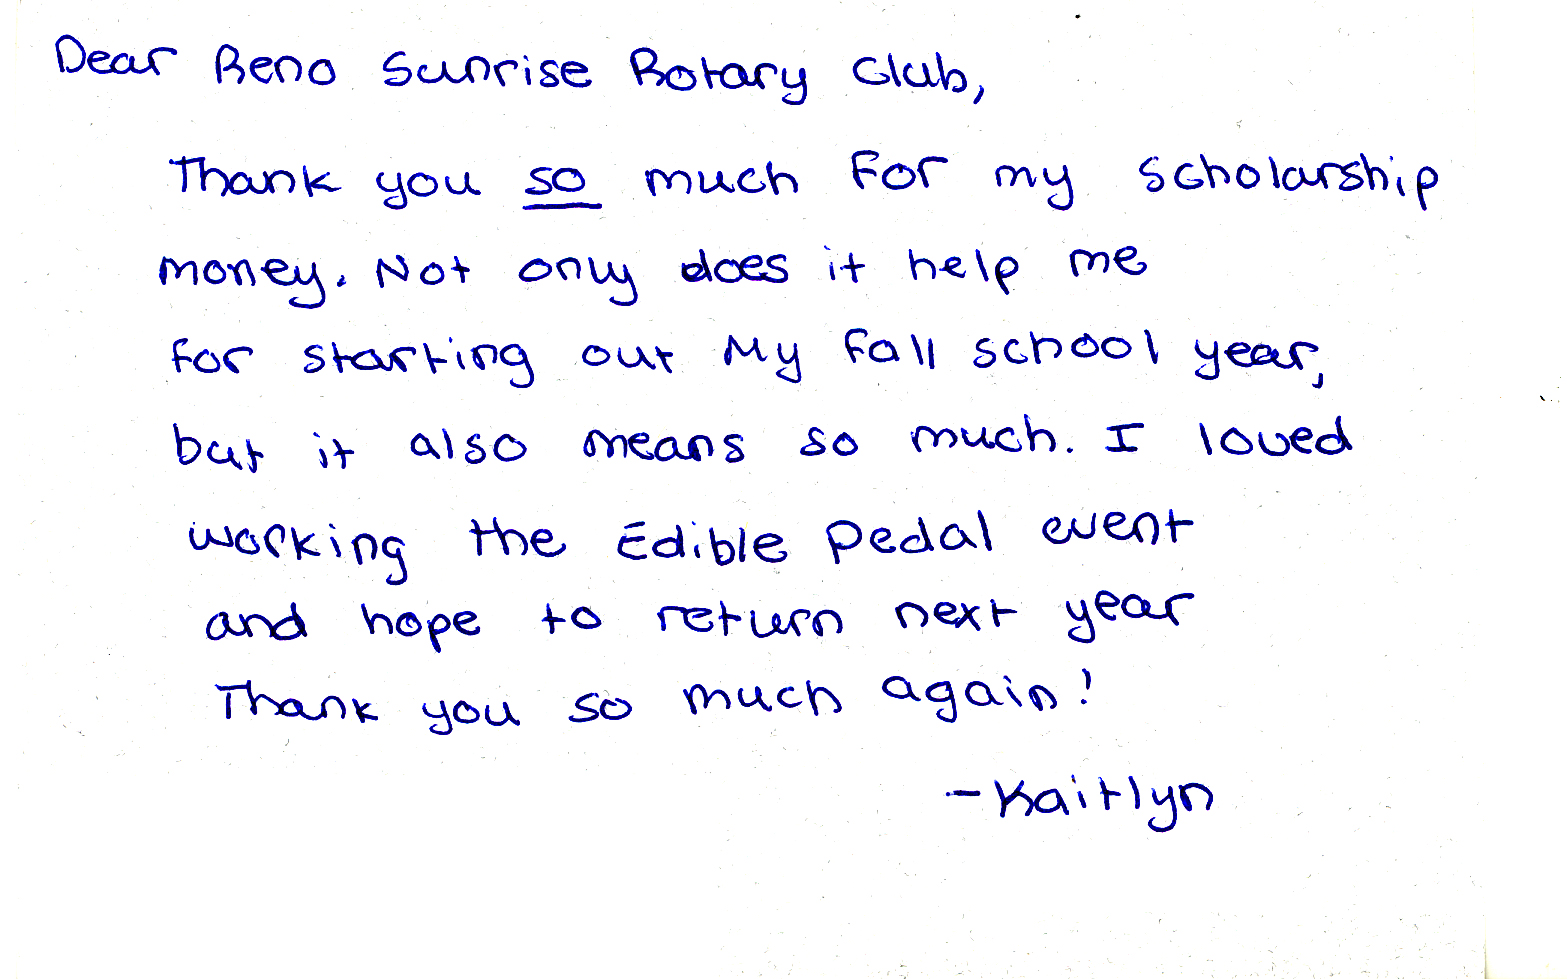 Dear Reno Sunrise Rotary Club,
Thank you so much for my scholarship
money. Not only does it help me
for starting out my fall school year,
but it also means so much. I loved
working the Edible Pedal event
and hope to return next year
Thank you so much again!
-Kaitlyn